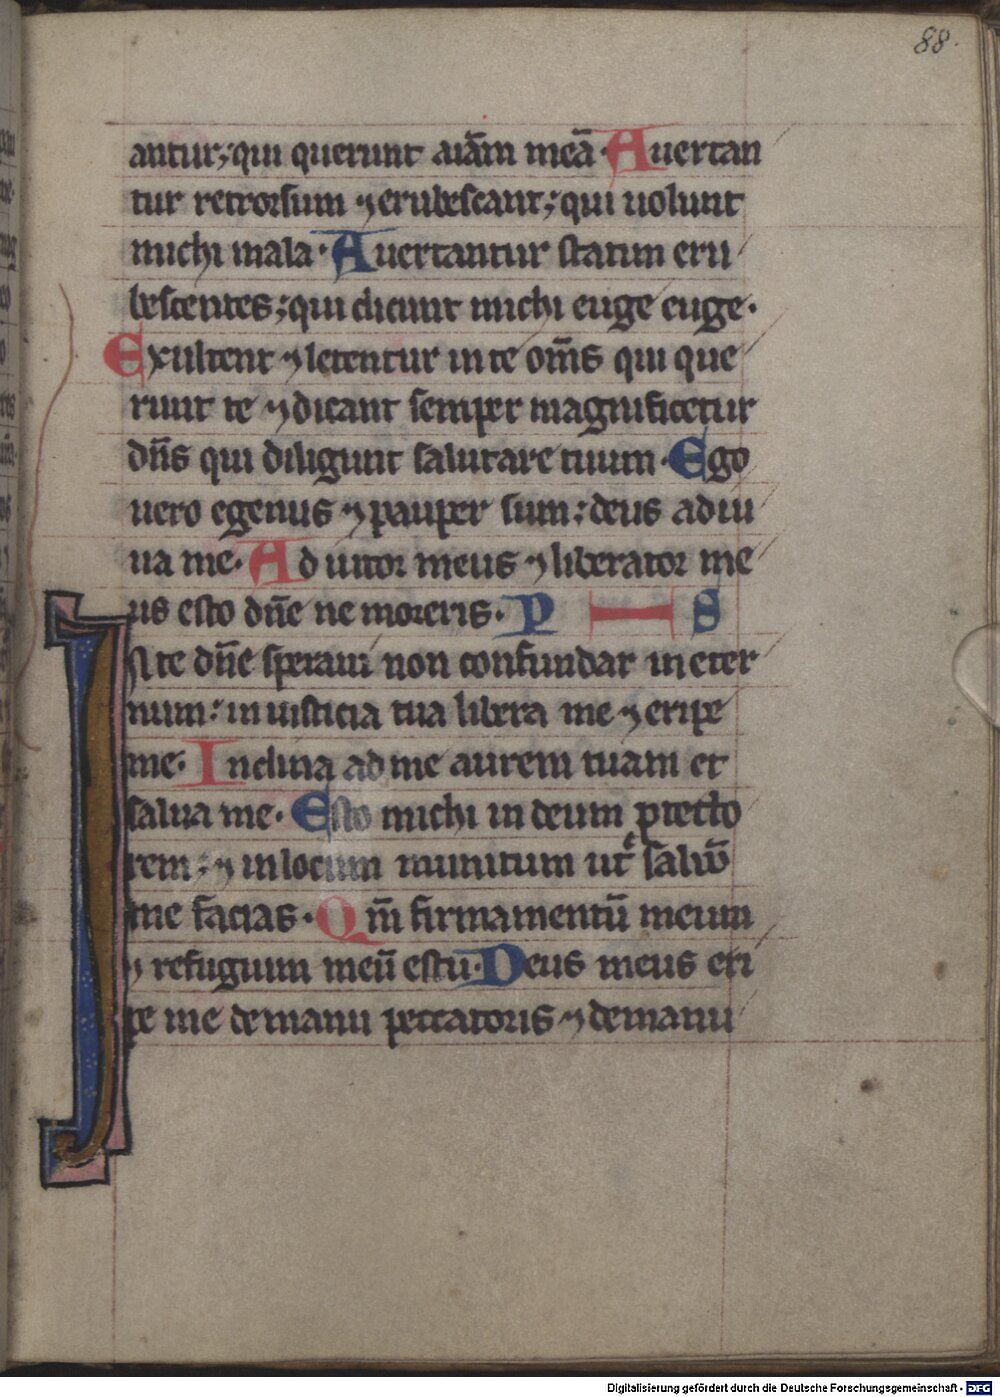 88.
antur; qui querunt aīam meā· Auertan
tur retrorsum ⁊ erubescant; qui uolunt
michi mala· Auertantur statim eru
bescentes; qui dicunt michi euge euge·
Exultent ⁊ letentur in te om̄s qui que
runt te ⁊ dicant semper magnificetur
dn̄s qui diligunt salutare tuum· Ego
uero egenus ⁊ pauper sum: deus adiu
ua me· Adiutor meus ⁊ liberator me
us esto dn̄e ne moreris· P S
In te dn̄e speraui non confundar in eter
num: in iusticia tua libera me ⁊ eripe
me· Inclina ad me aurem tuam et
salua me· Esto michi in deum ꝓtecto
rem: ⁊ in locum munitum ut saluū
me facias· Qm̄ firmamentū meum
⁊ refugium meū es tu· Deus meus eri
pe me de manu peccatoris ⁊ de manu
Digitalisierung gefördert durch die Deutsche Forschungsgemeinschaft - DFG